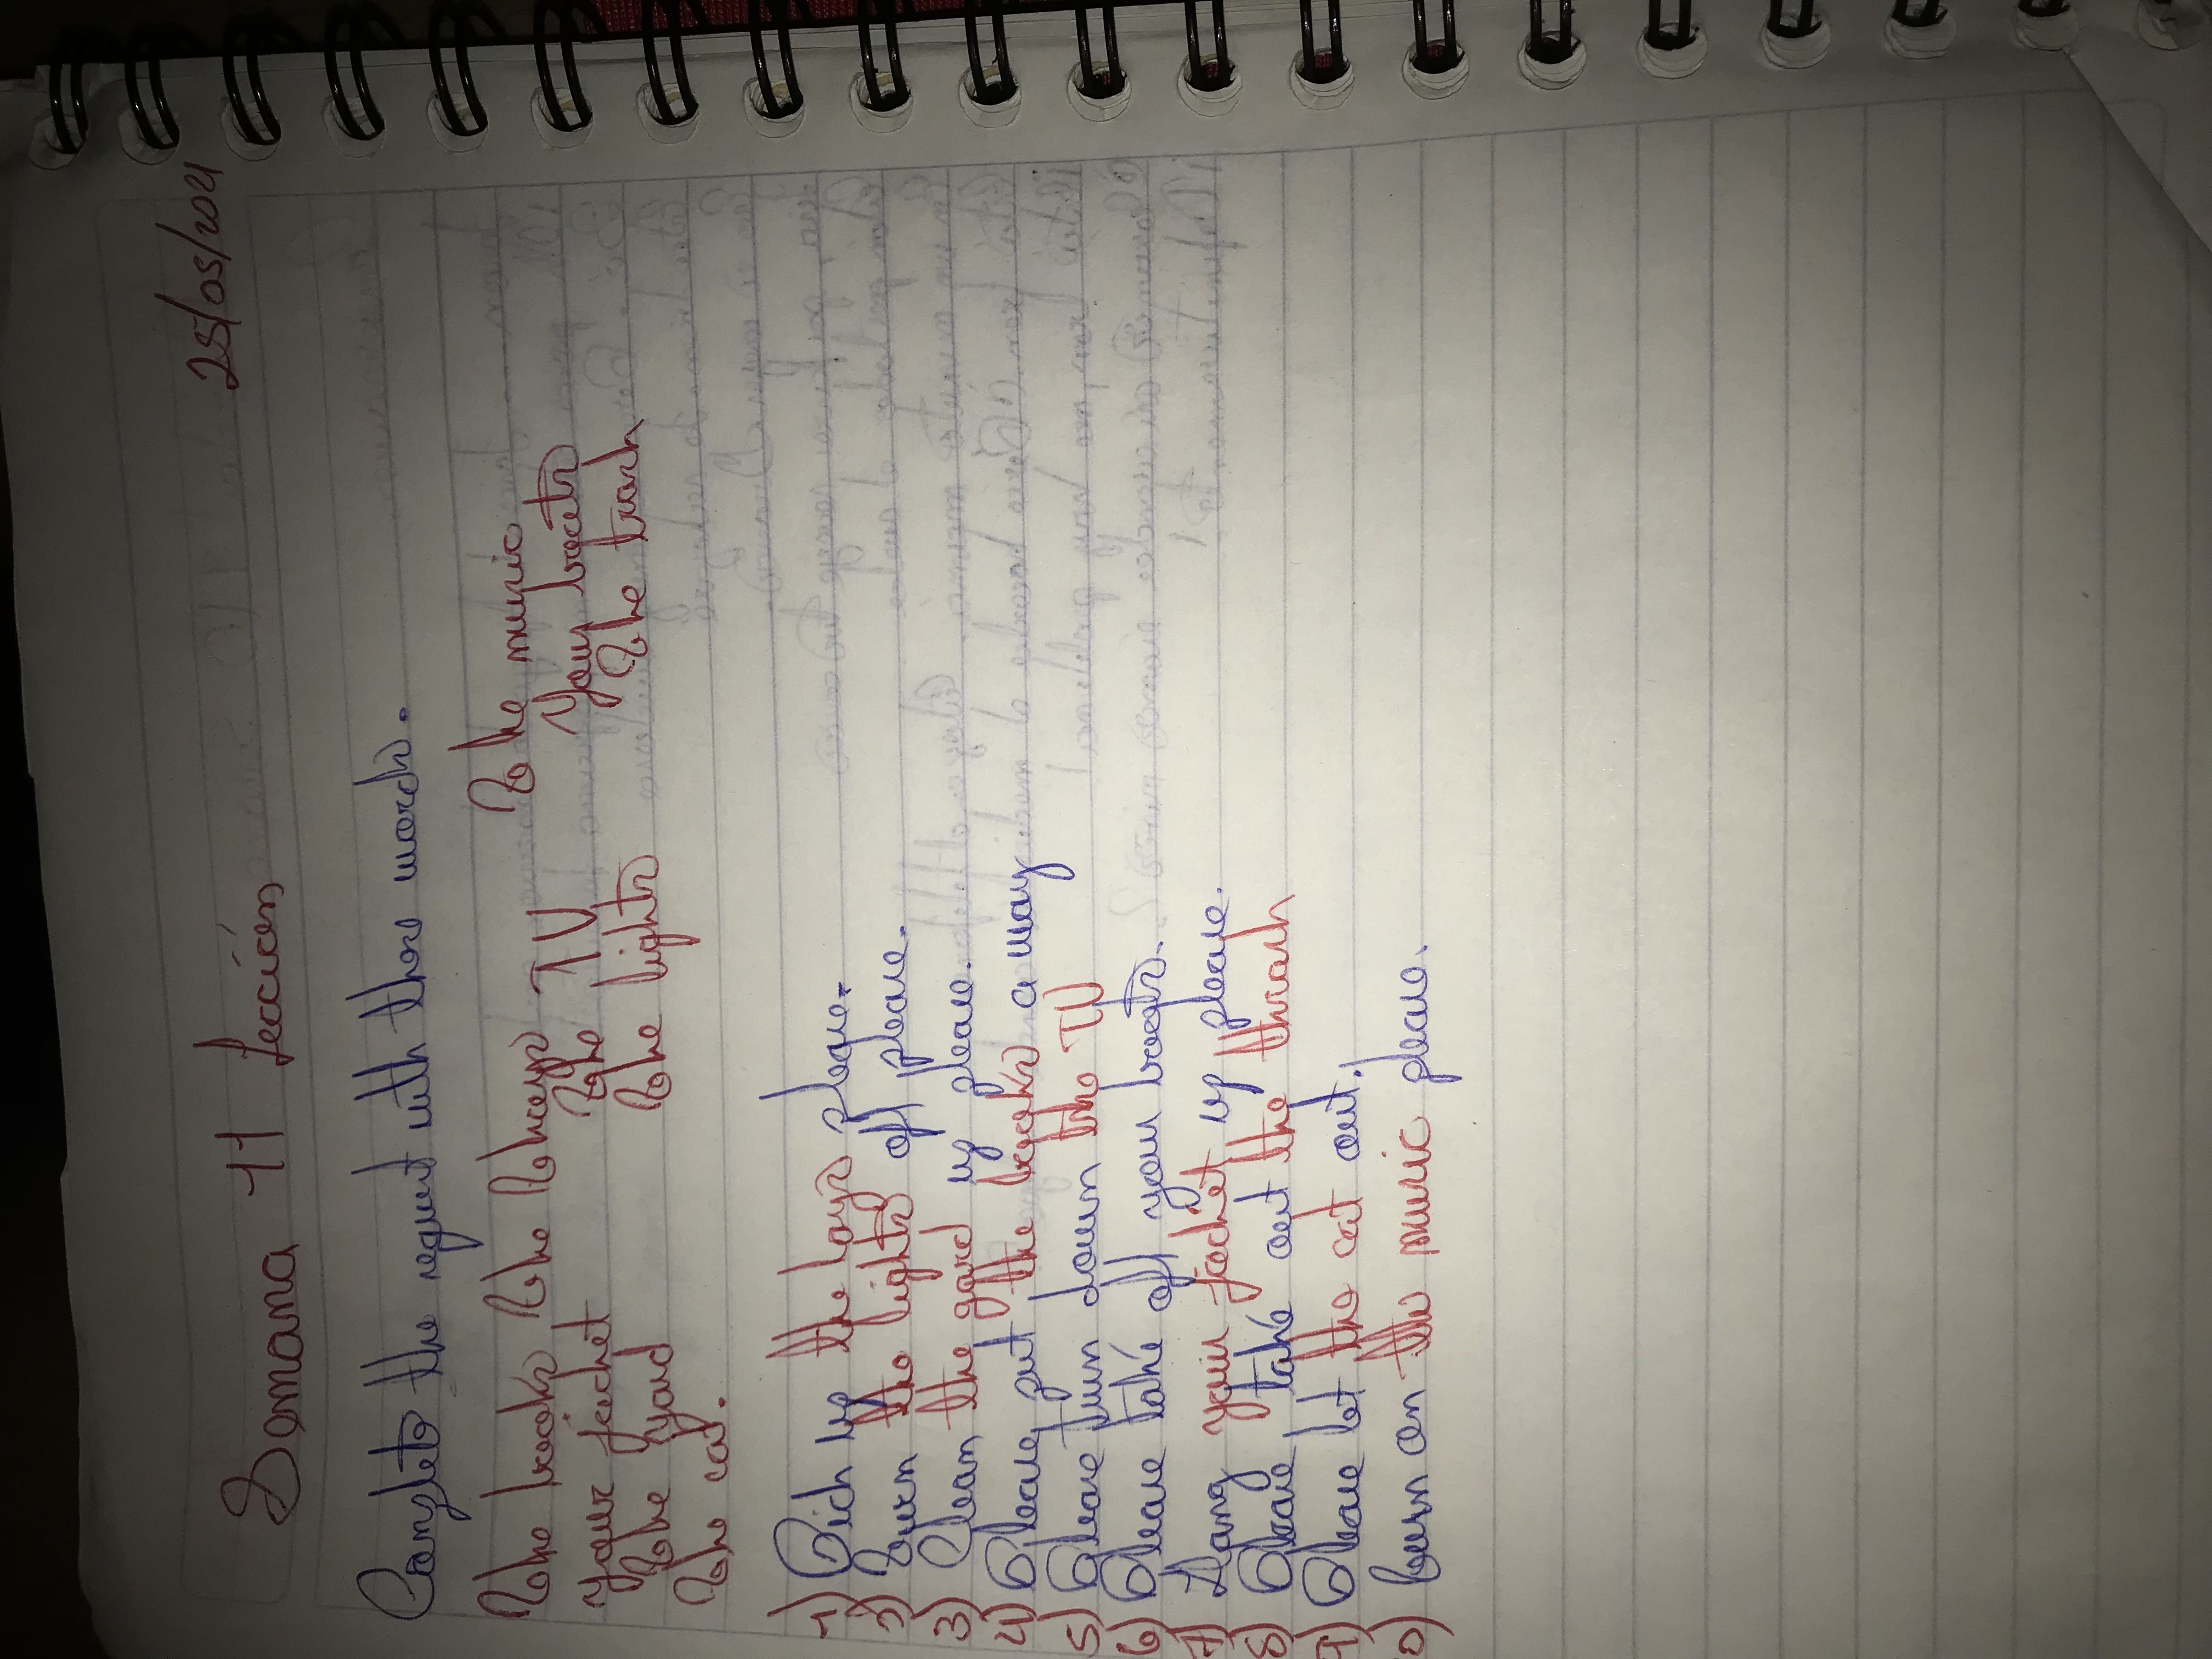 Semana 11 Lección 25/05/2021
Complete the request with these words.
The books The The keys The music
your jacket The TV Your boots
The yard The lights The trash
The cat.
1) Pick up the toys please.
2) Turn the lights off please.
3) Clean the gard up please.
4) Please put the books a way
5) Please turn down the TV
6) Please take off your boots.
7) Hang your jacket up please.
8) Please take out the thrash
9) Please let the cat out.
0) turn on the music please.